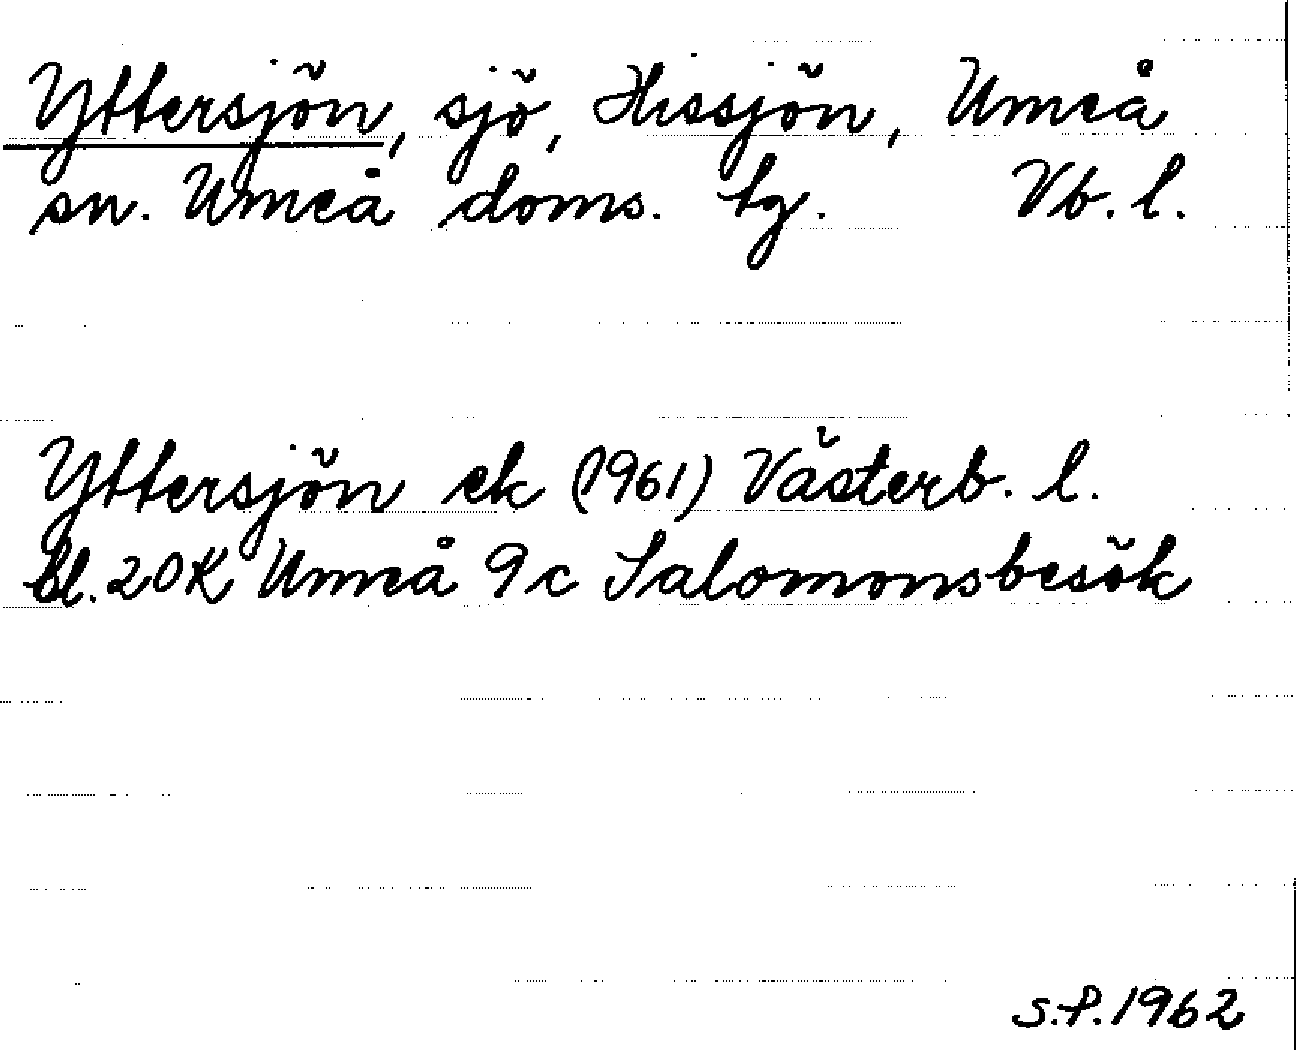 Yttersjön, sjö, Hissjön, Umeå
sn. Umeå doms. tg. Vb. l.
Yttersjön ek (1961) Västerb. l.
bl. 20K Umeå 9c Salomonsbesök
S.P. 1962